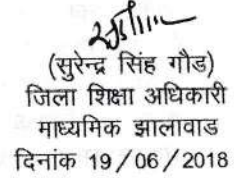 (सुरेन्द्र सिंह गौड)
जिला शिक्षा अधिकारी
माध्यमिक झालावाड
दिनांक 19/06/2018